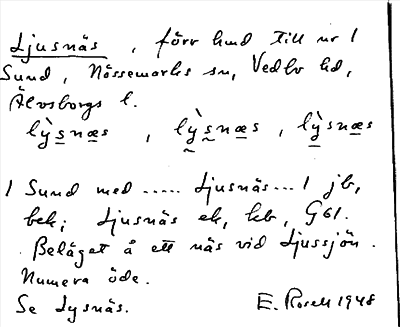 Ljusnäs, förr hmd till nr 1
Sund, Nössemarks sn, Vedbo hd,
Älvsborgs l.
lỳsnæs, lỳsnæs, lỳsnæs
1 Sund med ..... Ljusnäs ... 1 jb,
bek; Ljusnäs ek, kb, G61.
Beläget å ett näs vid Ljussjön.
Numera öde.
Se Lysnäs. E. Rosell 1948